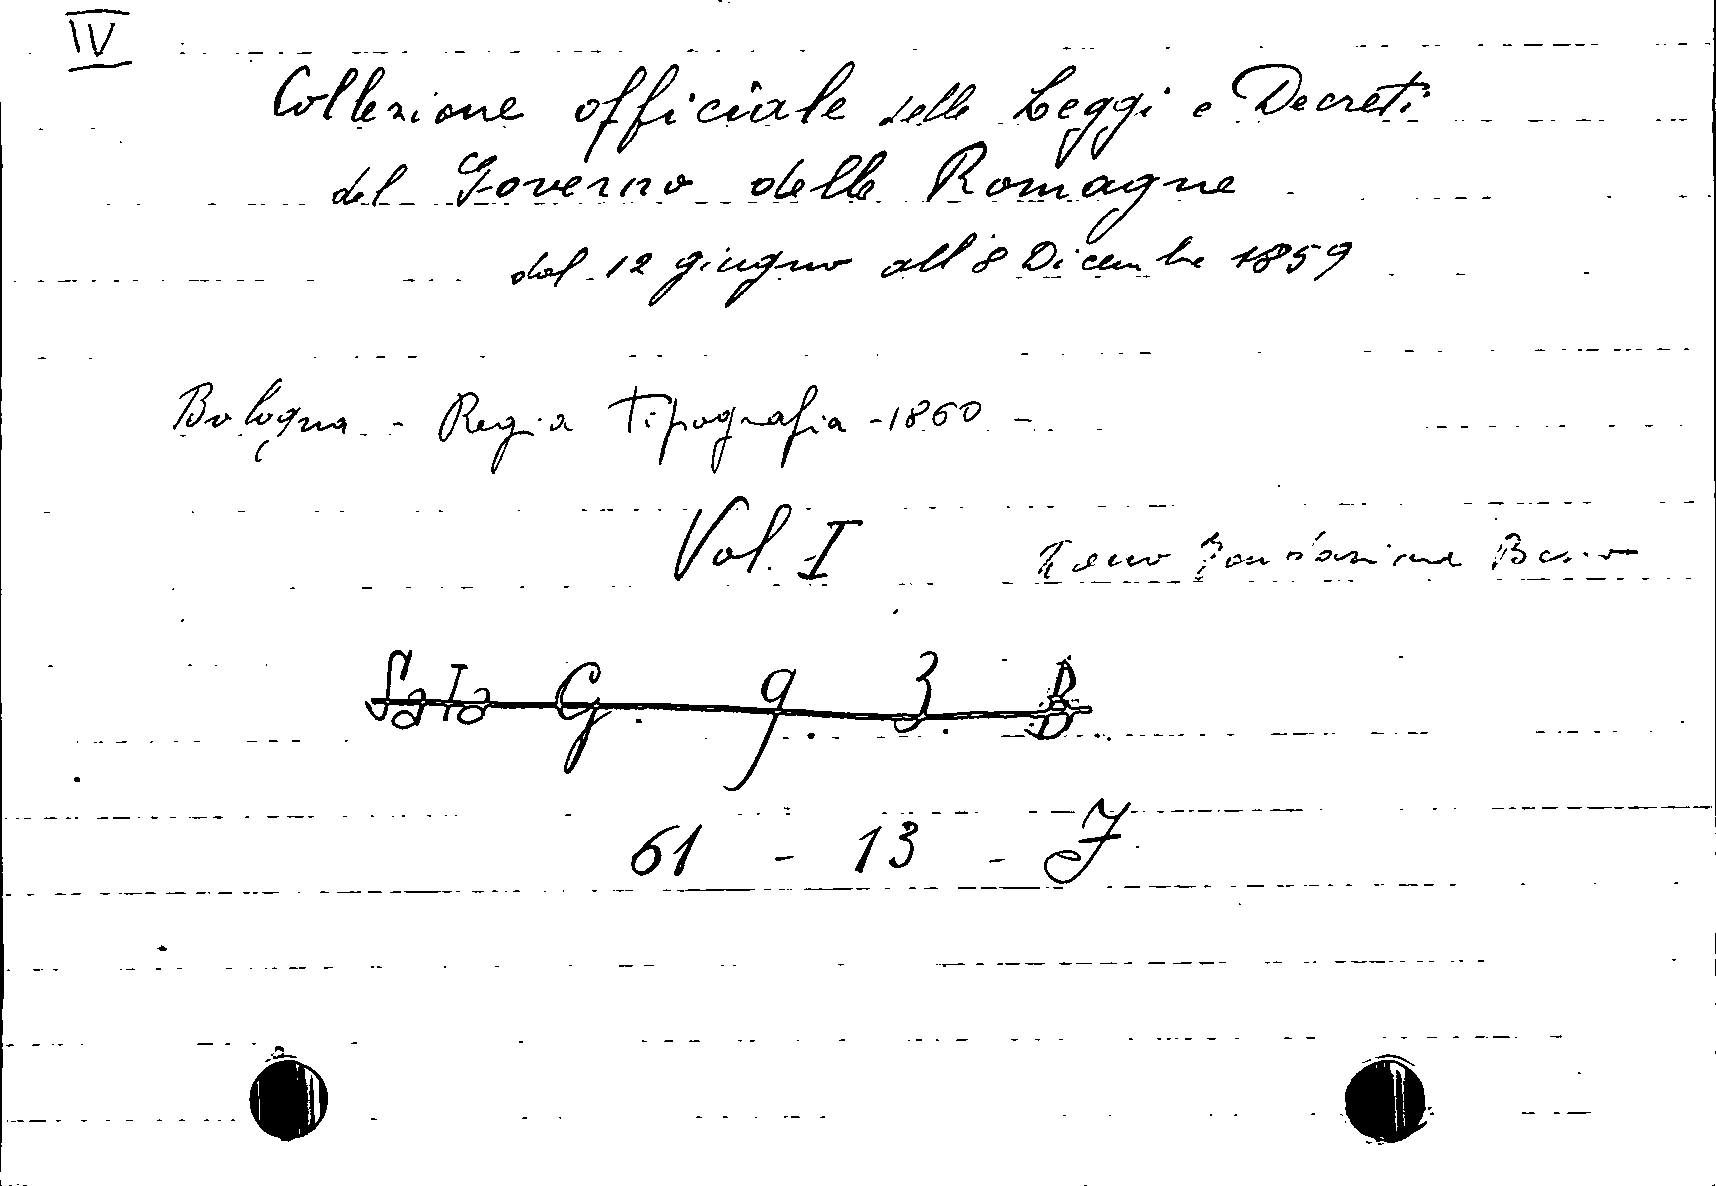 IV
Collezione officiale delle Leggi e Decreti
del Governo delle Romagne
dal 12 giugno all 8 Dicembre 1859
Bologna - Regia Tipografia - 1860 -
Vol. I
Fondazione
Sala G. 9. 3. B
61 - 13 - J